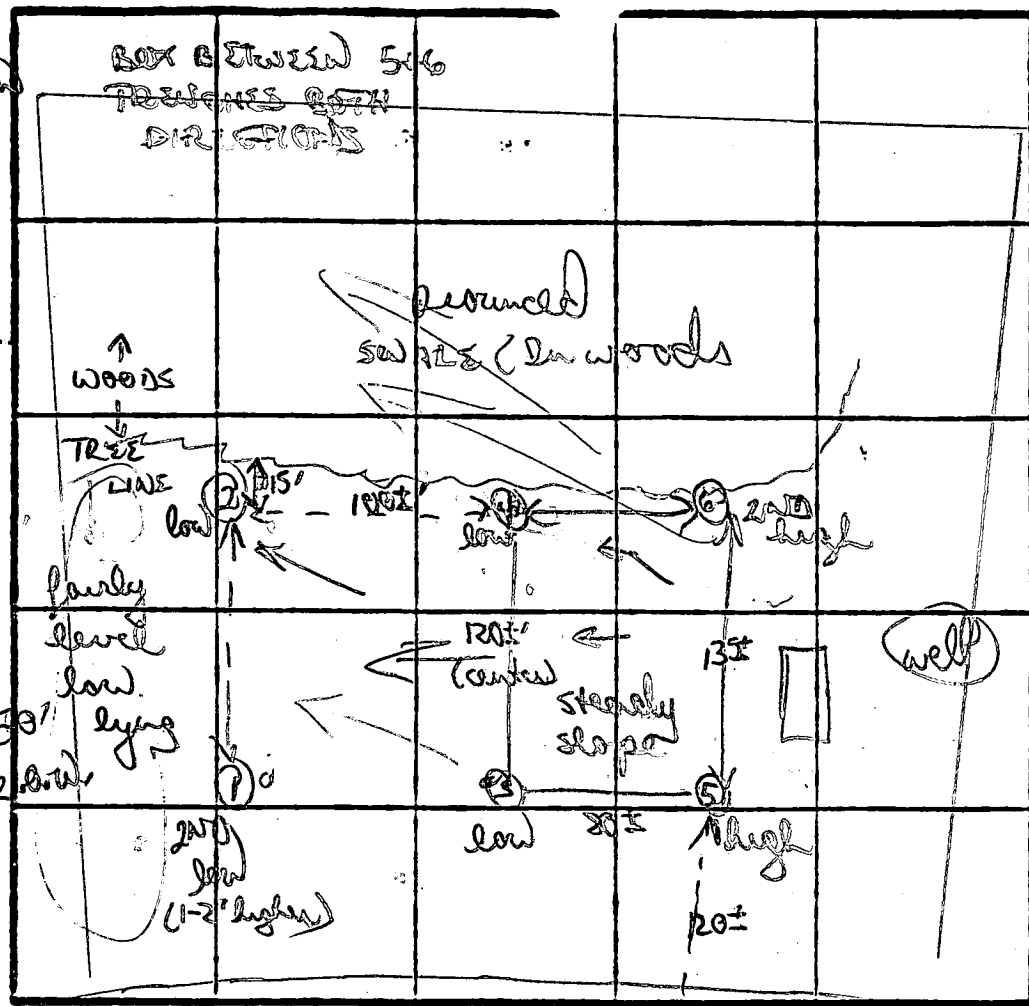 BOX BETWEEN 5+6
TRENCHES BOTH
DIRECTIONS
SWALE (In woods
WOODS
TREE
LINE
15'
low
low
2ND
high
fairly
level
low
lying
120±'
(center)
steady
slope
well
1
3
5
low
high
2ND
low
(1-2' higher)
120±